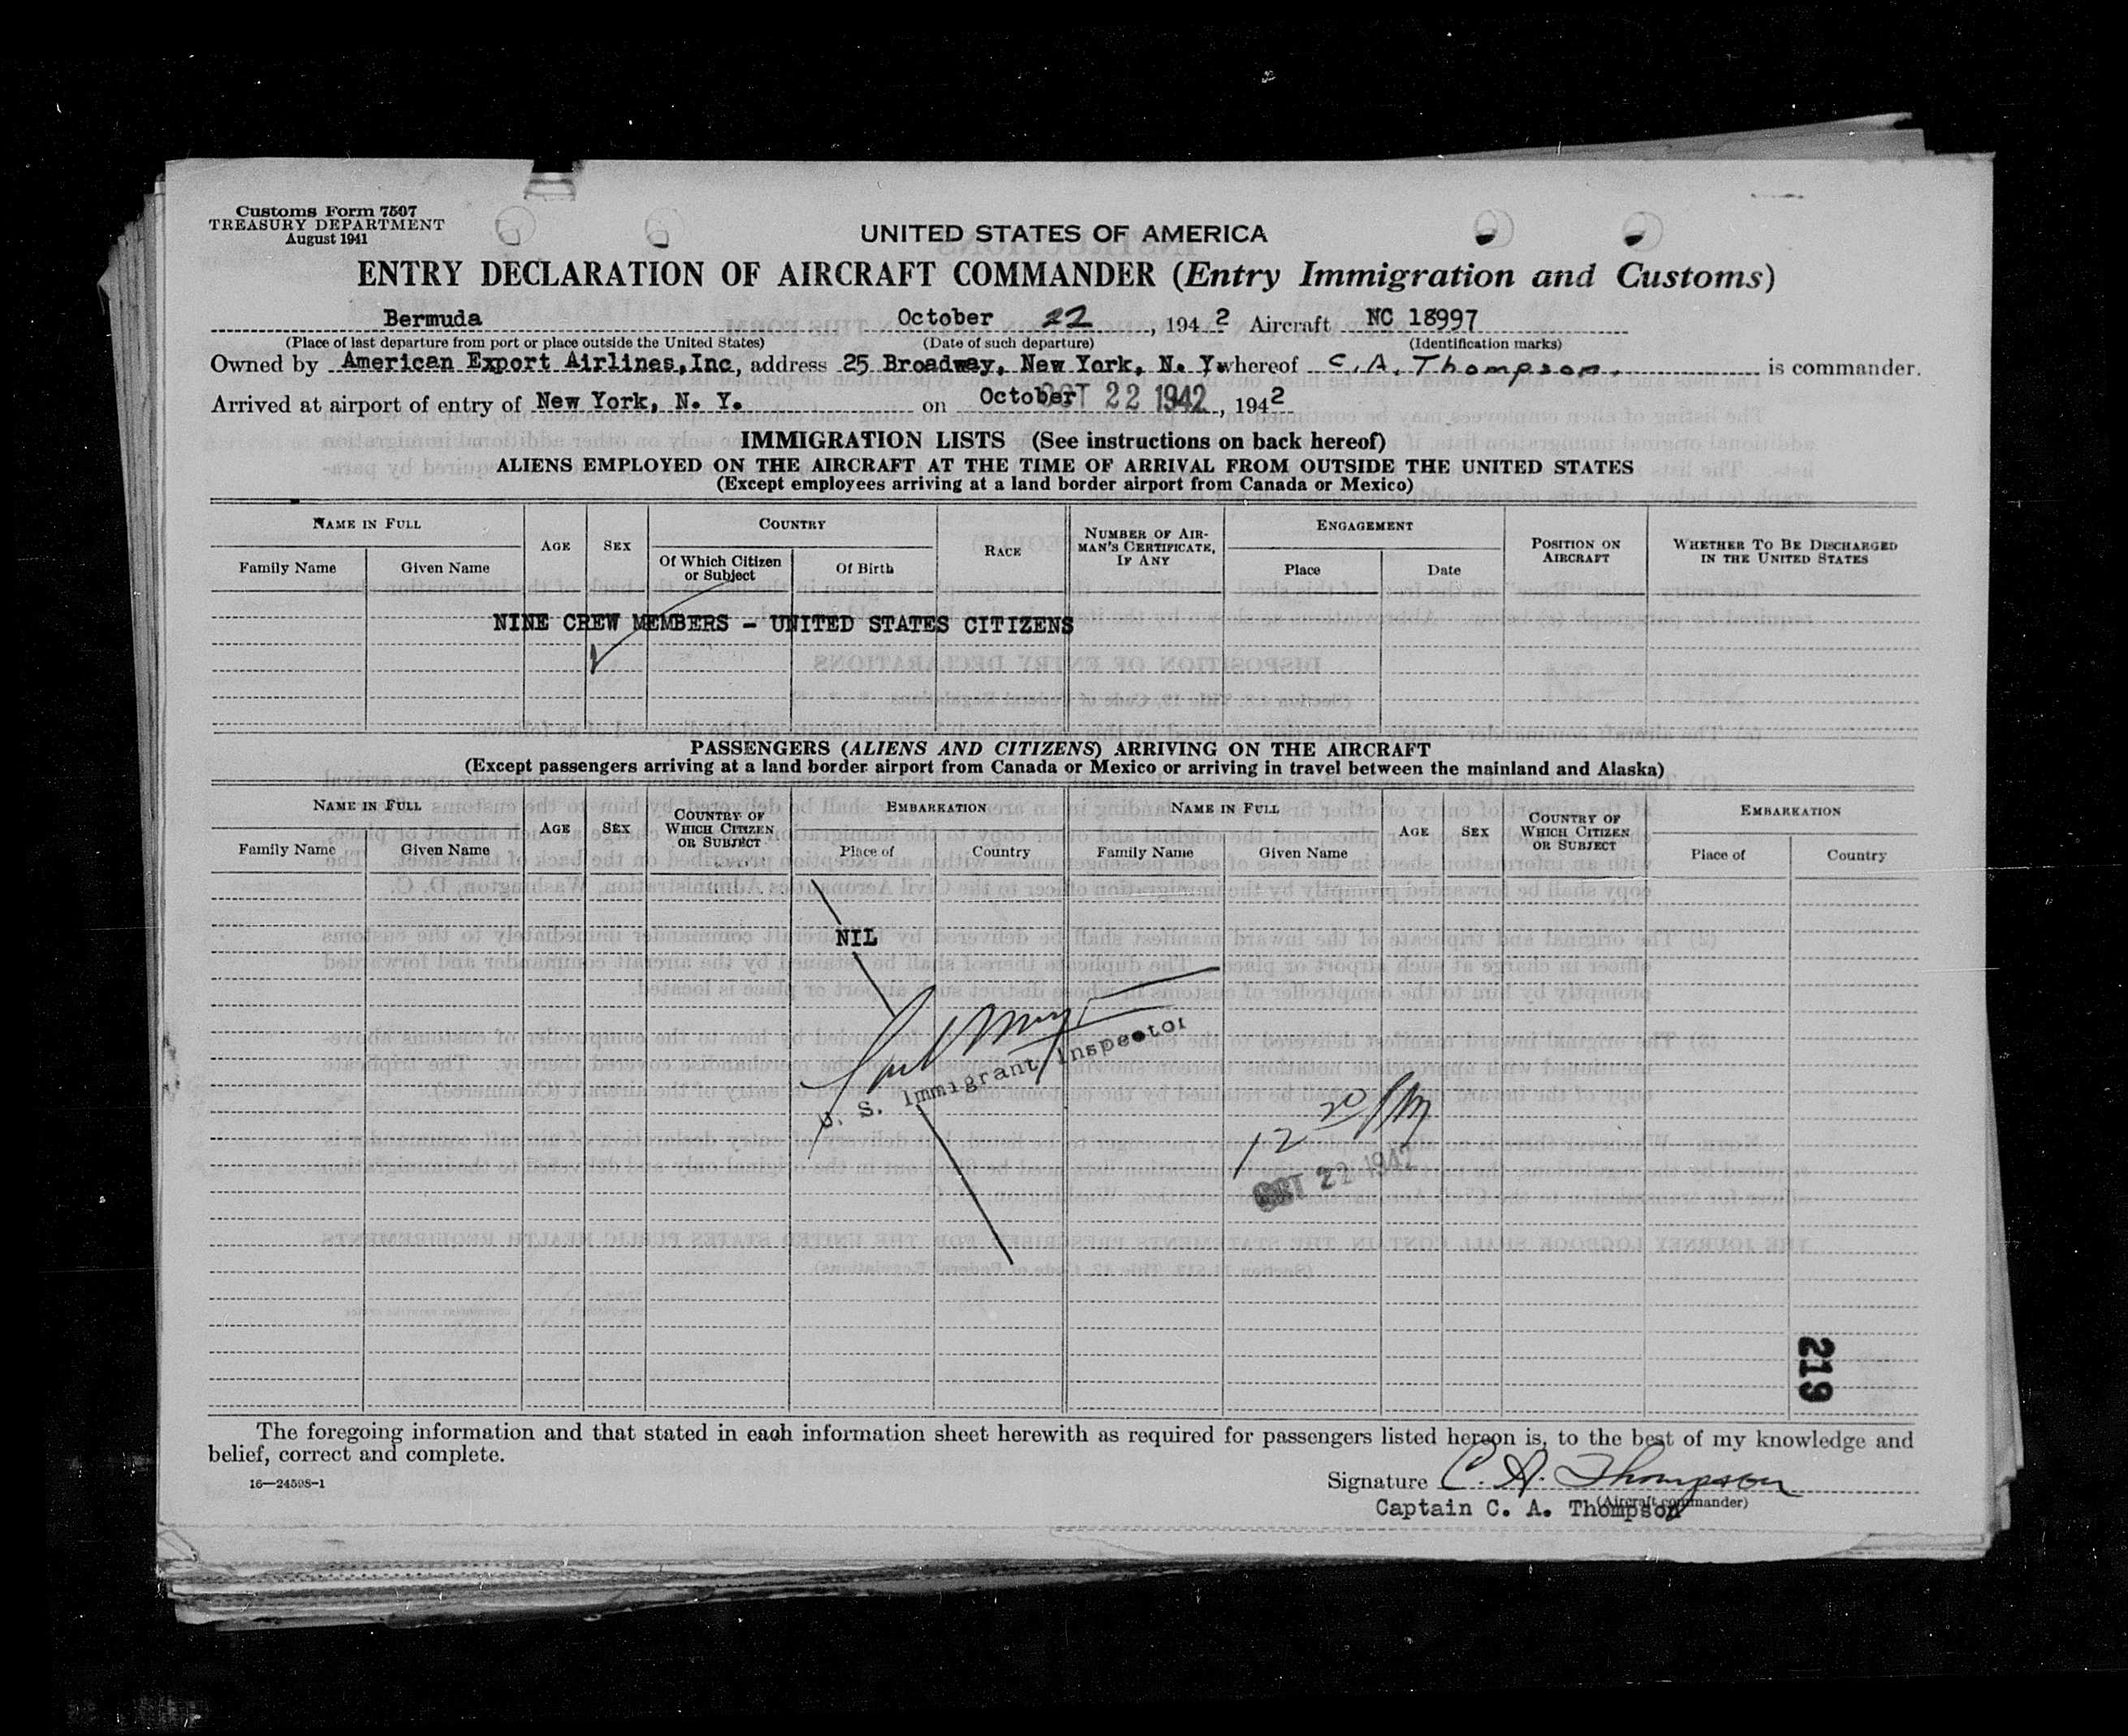 Customs Form 7507
TREASURY DEPARTMENT
August 1941
UNITED STATES OF AMERICA
ENTRY DECLARATION OF AIRCRAFT COMMANDER (Entry Immigration and Customs)
Bermuda October 22, 1942 Aircraft NC 18997
(Place of last departure from port or place outside the United States) (Date of such departure) (Identification marks)
Owned by American Export Airlines, Inc, address 25 Broadway, New York, N. Y. whereof C. A. Thompson. is commander.
Arrived at airport of entry of New York, N. Y. on October OCT 22 1942, 1942
IMMIGRATION LISTS (See instructions on back hereof)
ALIENS EMPLOYED ON THE AIRCRAFT AT THE TIME OF ARRIVAL FROM OUTSIDE THE UNITED STATES
(Except employees arriving at a land border airport from Canada or Mexico)
NAME IN FULL AGE SEX COUNTRY RACE NUMBER OF AIRMAN'S CERTIFICATE, IF ANY ENGAGEMENT POSITION ON AIRCRAFT WHETHER TO BE DISCHARGED IN THE UNITED STATES
Family Name Given Name Of Which Citizen or Subject Of Birth Place Date
NINE CREW MEMBERS - UNITED STATES CITIZENS
PASSENGERS (ALIENS AND CITIZENS) ARRIVING ON THE AIRCRAFT
(Except passengers arriving at a land border airport from Canada or Mexico or arriving in travel between the mainland and Alaska)
NAME IN FULL AGE SEX COUNTRY OF WHICH CITIZEN OR SUBJECT EMBARKATION NAME IN FULL AGE SEX COUNTRY OF WHICH CITIZEN OR SUBJECT EMBARKATION
Family Name Given Name Place of Country Family Name Given Name Place of Country
NIL
U. S. Immigrant Inspector
12 20 PM
OCT 22 1942
219
The foregoing information and that stated in each information sheet herewith as required for passengers listed hereon is, to the best of my knowledge and
belief, correct and complete.
16—24598-1
Signature C. A. Thompson
(Aircraft commander)
Captain C. A. Thompson